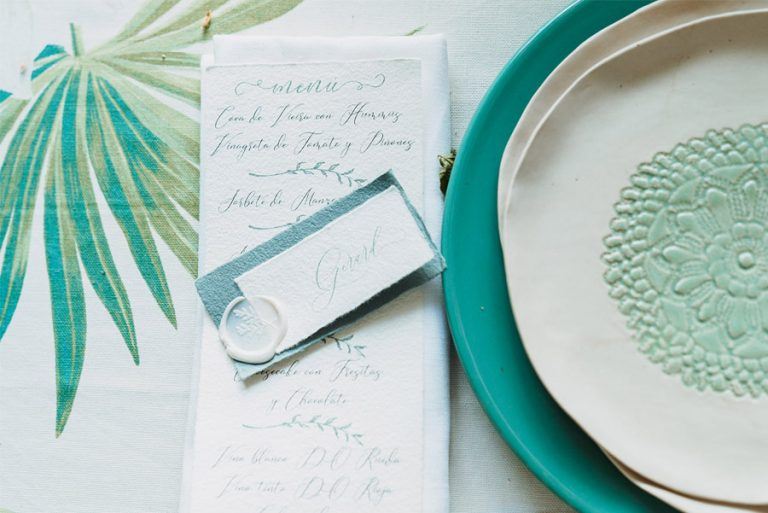 menú
Cava de Vieira con Hummus
Vinagreta de Tomate y Piñones
Sorbete de Manza
Gerard
Cheesecake con Fresitas
y Chocolate
Vino blanco D.O Rueda
Vino tinto D.O Rioja